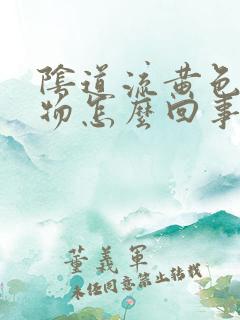 陰道流黄色
物怎麼回事
董義軍
未经同意禁止转载